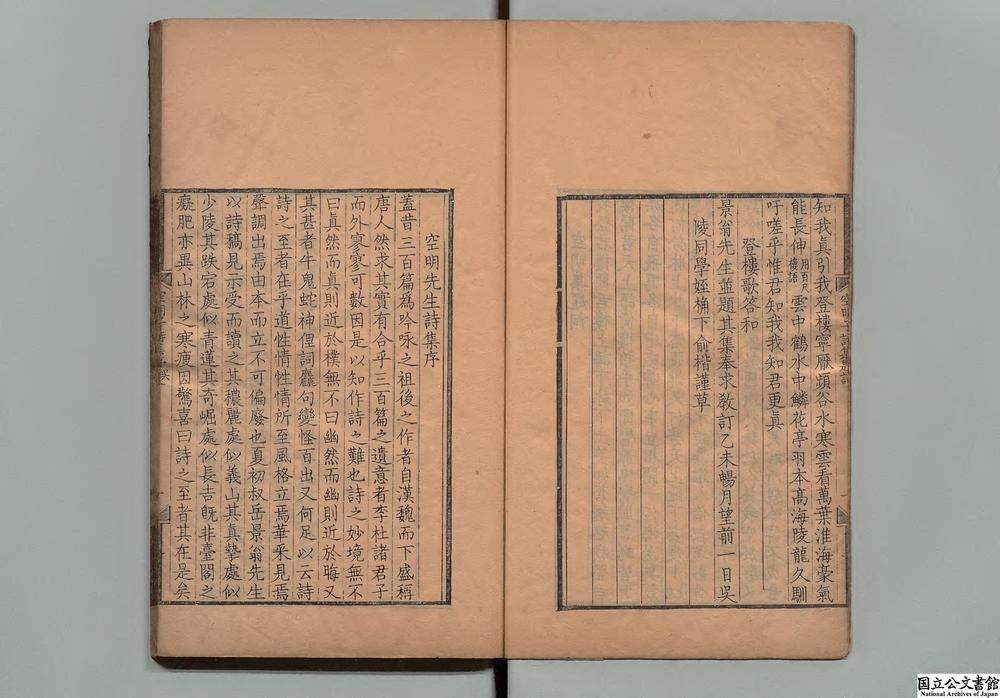 知我真引我登樓寧厭頻谷水寒雲看萬葉淮海豪氣
能長伸用百尺樓語雲中鶴水中鱗花亭羽本高海陵龍久馴
吁嗟乎惟君知我我知君更真
登樓歌答和
景翁先生並題其集奉求敎訂乙未暢月望前一日吳
陵同學姪桷下俞楷謹草
空明先生詩集序
蓋昔三百篇為吟咏之祖後之作者自漢魏而下盛稱
唐人然求其實有合乎三百篇之遺意者李杜諸君子
而外寥寥可數因是以知作詩之難也詩之妙境無不
曰真然而真則近於樸無不曰幽然而幽則近於晦又
其甚者牛鬼蛇神俚詞麤句變怪百出又何足以云詩
詩之至者在乎道性情性情所至風格立焉華采見焉
聲調出焉由本而立不可偏廢也夏初叔岳景翁先生
以詩稿見示受而讀之其穠麗處似義山其真摯處似
少陵其跌宕處似青蓮其奇崛處似長吉旣非臺閣之
癡肥亦異山林之寒瘦因驚喜曰詩之至者其在是矣
国立公文書館
National Archives of Japan